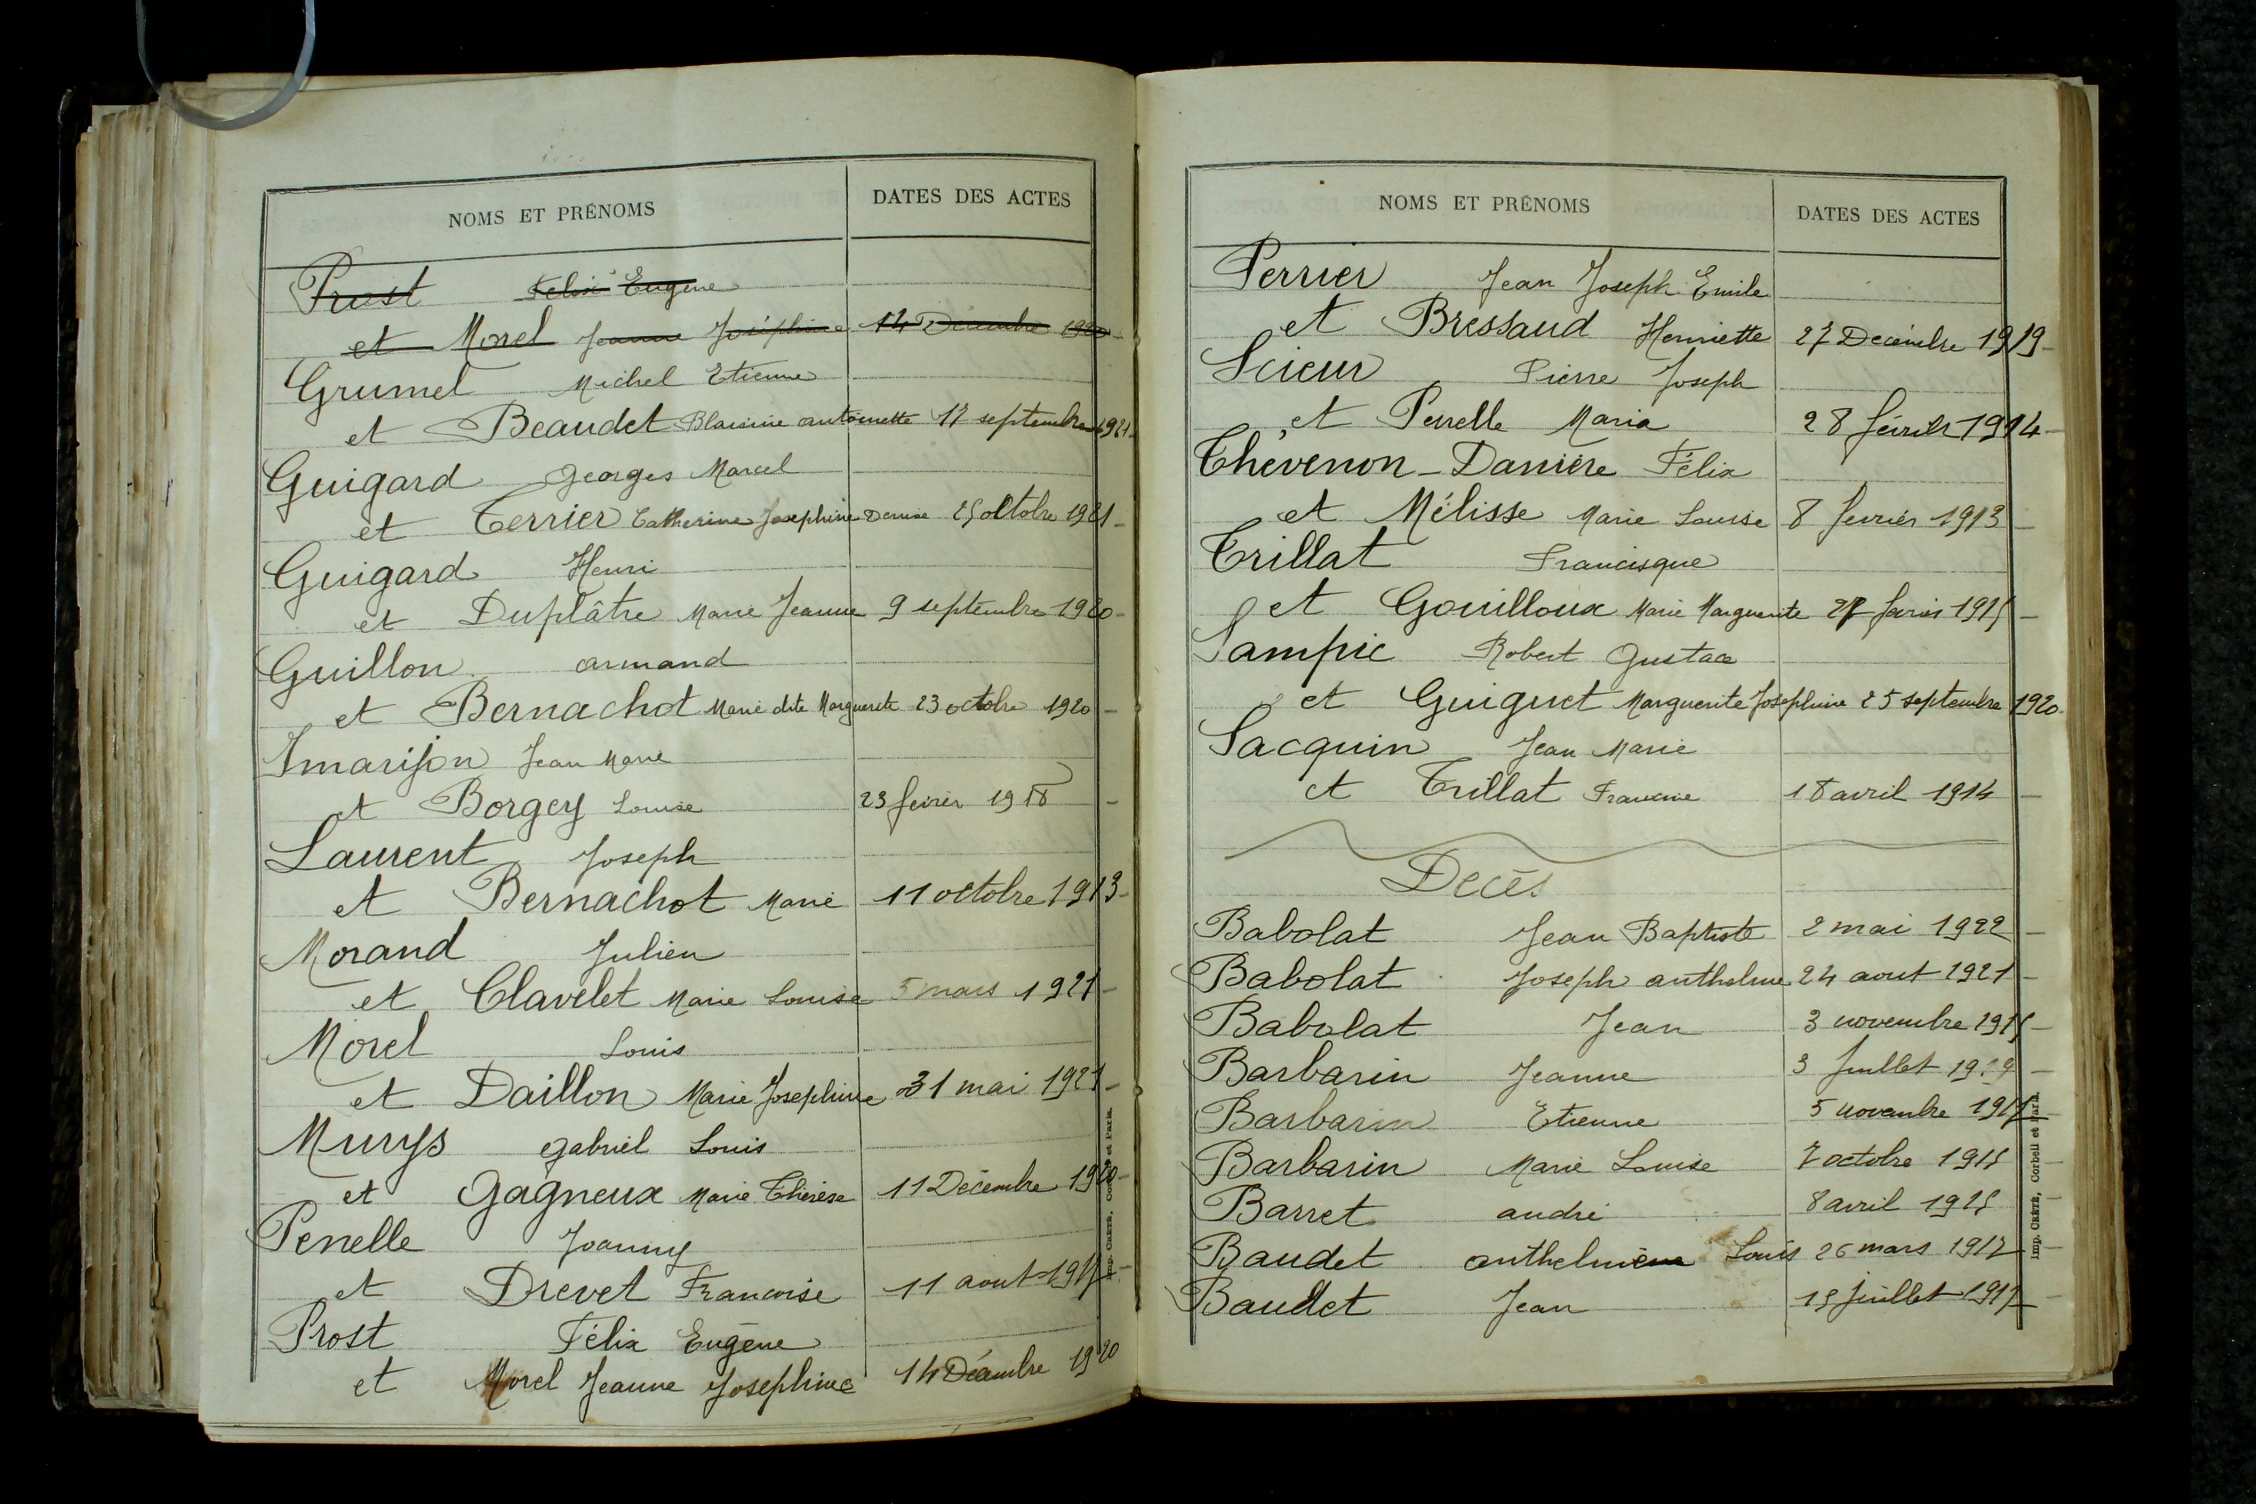 NOMS ET PRÉNOMS DATES DES ACTES
Prost Felix Eugène
et Morel Jeanne Joséphine 14 Décembre 1920
Grumel Michel Etienne
et Beaudet Blaisine antoinette 17 septembre 1921
Guigard Georges Marcel
et Terrier Catherine Josephine Denise 25 octobre 1921
Guigard Henri
et Duplâtre Marie Jeanne 9 septembre 1920
Guillon armand
et Bernachot Marie dite Marguerite 23 octobre 1920
Jean Marie
et Borgey Louise 23 février 1918
Laurent Joseph
et Bernachot Marie 11 octobre 1913
Morand Julien
et Clavelet Marie Louise 5 mars 1921
Morel Louis
et Daillon Marie Josephine 31 mai 1921
Murys gabriel Louis
et Gagneux Marie Thérèse 11 Décembre 1920
Penelle Joanny
et Drevet Francoise 11 aout
Prost Félix Eugène
et Morel Jeanne Josephine 14 Décembre 1920
NOMS ET PRÉNOMS DATES DES ACTES
Perrier Jean Joseph Emile
et Bressaud Henriette 27 Decémbre 1919
Scieur Pierre Joseph
et Penelle Maria 28 février 1914
Thévenon-Danière Félix
et Mélisse Marie Louise 8 fevrier 1913
Trillat Francisque
et Gouilloux Marie Marguerite
Sampic Robert Gustave
et Guiguet Marguerite Josephine 25 septembre 1920
Sacquin Jean Marie
et Trillat Francine 18 avril 1914
Decès
Babolat Jean Baptiste 2 mai 1922
Babolat Joseph anthelme 24 aout 1921
Babolat Jean 3 novembre 1915
Barbarin Jeanne 3 Juillet
Barbarin Etienne 5 novembre
Barbarin Marie Louise 7 octobre 1915
Barret andré 8 avril
Baudet Louis 26 mars 1917
Baudet Jean juillet 1917
Imp. CRÉTÉ, Corbeil et Paris.